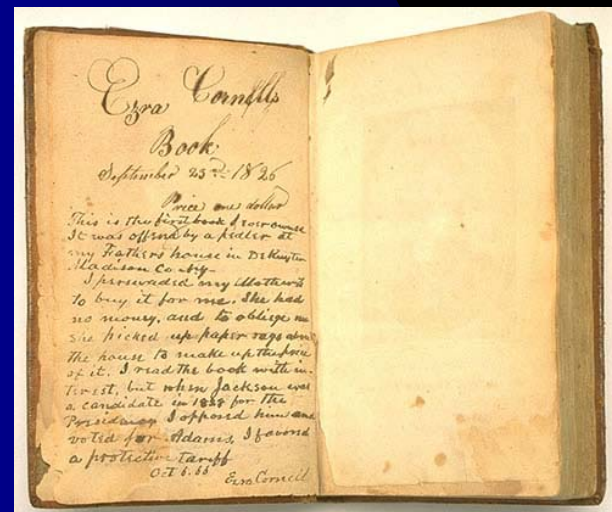 Ezra Cornells
Book
September 23rd 1826
Price one dollar
This is the first book I ever owned
It was offered by a pedler at
my Fathers house in DeRuyter
Madison Co NY
I perswaded my Mother
to buy it for me. She had
no money, and to oblige me
she picked up paper rags about
the house to make up the price
of it. I read the book with in-
terest, but when Jackson was
a candidate in 1828 for the
Presidency I opposed him and
voted for Adams, I favord
a protective tariff
Oct 6. 66
Ezra Cornell